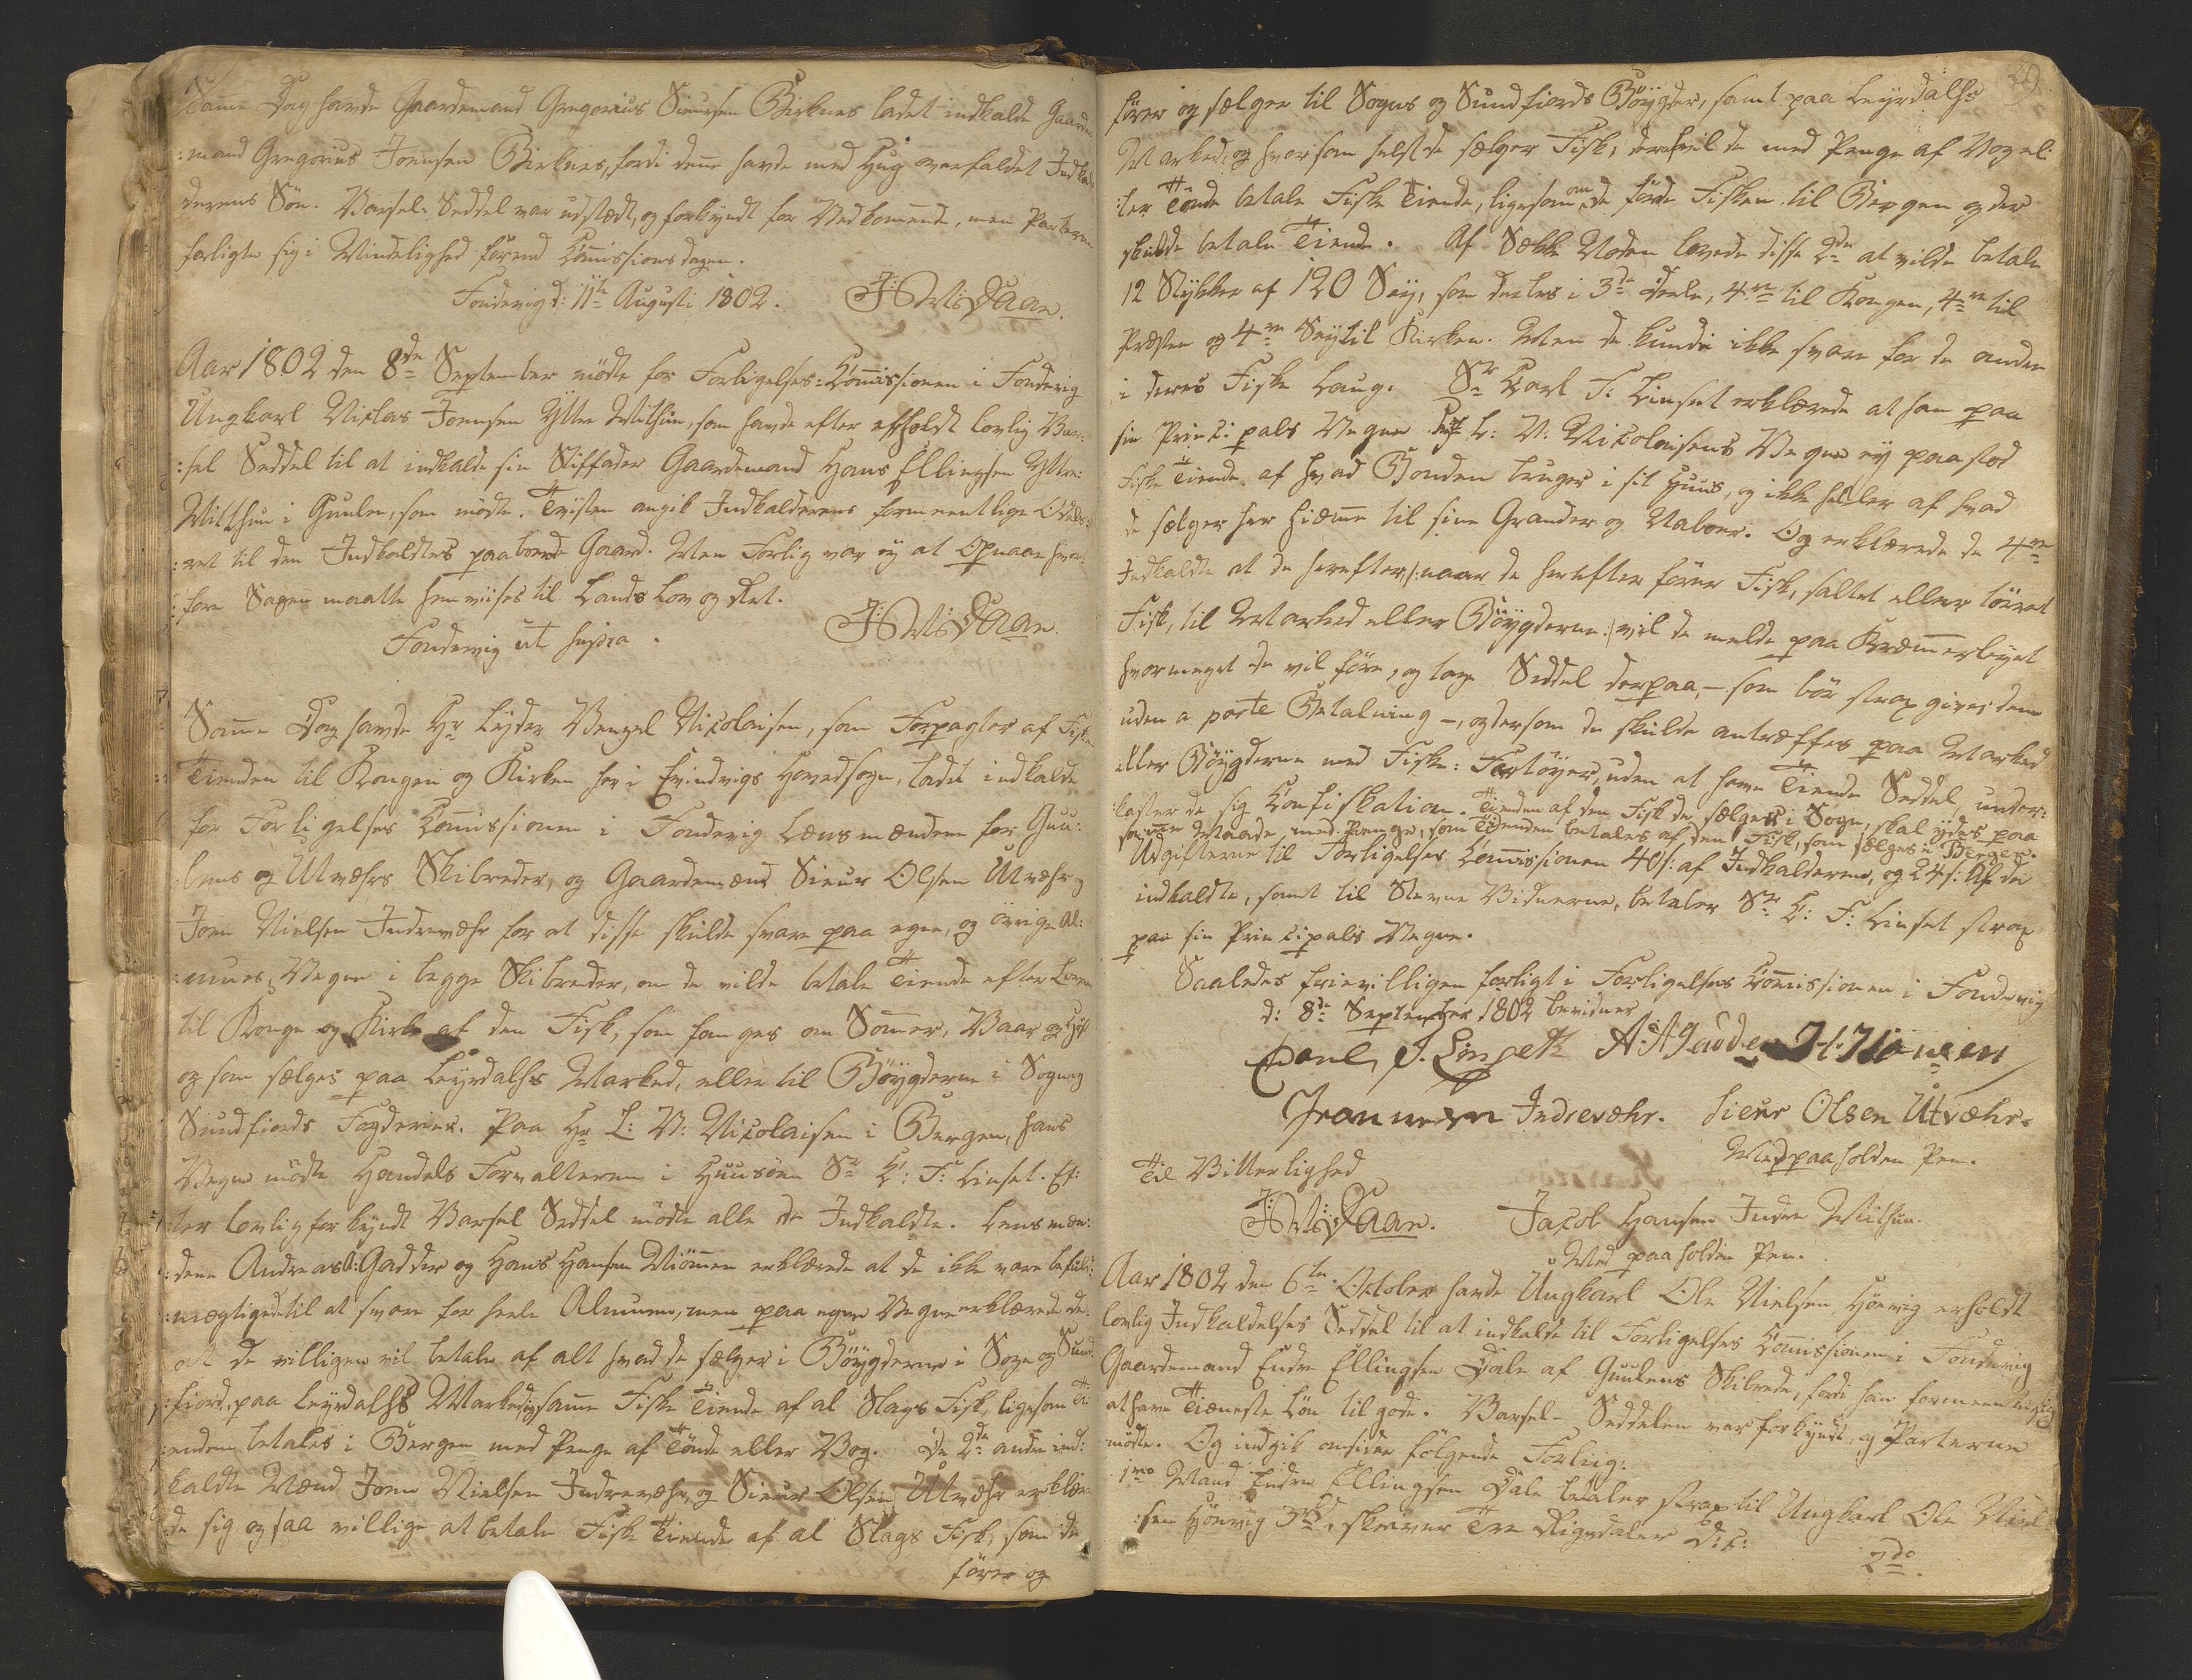 Samme Dag havde Gaardemand Gregorius Siursen Birknes ladet indkalde Gaarde
:mand Gregorius Joensen Birknes, fordi denne havde med Hug overfaldet Indkal
derens Søn. Varsel-Seddel var udstædt, og forkyndt for Vedkommende, men Parterne
forligte sig i Mindelighed førend Commissions dagen.
Fondevig d: 11te Augusti 1802.
Aar 1802 den 8de September mødte for Forligelses-Commissionen i Fondevig
Ungkarl Niclas Joensen Yttre Mithun, som havde efter erholdt lovlig Var:
:sel Seddel til at indkalde sin Stiffader Gaardemand Hans Ellingsen Yttre:
Mitthun i Guulen, som mødte. Tvisten angik Indkalderens formeentlige Odels:
:ret til den Indkaldtes paaboende Gaard. Men Forlig var ey at opnaae hvor:
:fore Sagen maatte henviises til Lands Lov og Ret.
Fondevig ut supra.
Samme Dag havde Hr Lyder Wenzel Nicolaisen, som Forpagter af Fiske
Tienden til Kongen og Kirken her i Evindvigs Hovedsogn, ladet indkalde
for Forligelses Commissionen i Fondevig Lænsmændene for Guu:
lens og Utvæhrs Skibreder, og Gaardemænd Sieur Olsen Utvæhr og
Joen Nielsen Indrevæhr for at disse skulde svare paa egne, og øvrige Al:
:mues Vegne i begge Skibreder, om de vilde betale Tiende efter Loven
til Konge og Kirke af den Fisk, som fanges om Sommer, Vaar og Høst
og som sælges paa Leyrdalss Marked, eller til Bøygderne i Sogn og
Sundfiords Fogderier. Paa Hr L: W: Nicolaisen i Bergen, hans
Vegne mødte Handels Forvalteren i Huusøen Sr C: F: Linset. Ef:
ter lovlig forkyndt Varsel Seddel mødte alle de Indkaldte. Lensmæn:
:dene Andreas A: Gadder og Hans Hansen Miømen erklærede at de ikke vare befuld:
:mægtigede til at svare for heele Almuen, men paa egne Vegne erklærede de
at de villigen vil betale af alt hvad de sælger i Bøygderne i Sogn og Sund:
:fiord, paa Leyrdalss Marked, og samme Fiske Tiende af al Slags Fisk, ligesom Ti
:enden betales i Bergen med Penge af Tønde eller Vog. De 2de andre ind:
kaldte Mænd Joen Nielsen Indrevæhr, og Sieur Olsen Utvæhr erklære
de sig ogsaa villige at betale Fiske Tiende af al Slags Fisk, som de
fører og
29.
fører og sælger til Sogns og Sundfiords Bøygder, samt paa Leyrdalss
Marked, og hvorsom helst de sælger Fisk, deraf vil de med Penge af Vog el:
ler Tønde betale Fiske Tiende, ligesom om de førde Fisken til Bergen og der
skulde betale Tiende. Af Sække Noden lovede disse 2de at vilde betale
12 Stykker af 120 Sey, som deeles i 3de Deele, 4re til Kongen, 4re til
Præsten og 4re Sey til Kirken. Men de kunde ikke svare for de andre
i deres Fiske Laug. Sr Carl F: Linset erklærede at han paa
sin Principals Vegne L: W: Nicolaisens Vegne ey paastod
Fiske Tiende af hvad Bonden bruger i sit Huus, og ikke heller af hvad
de sælger her hiemme til sine Grander og Naboer. Og erklærede de 4re
Indkaldte at de herefter /: naar de herefter fører Fisk, saltet eller tørret
Fisk, til Marked eller Bøygderne :/ vil de melde paa Kræmmerleyet
hvormeget de vil føre, og tage Seddel derpaa, – som bør strax gives dem
uden a parte Betalning –, og dersom de skulde antræffes paa Marked
eller Bøygderne med Fiske: Fartøyer, uden at have Tiende Seddel, under:
kaster de sig Confiskation. Tienden af den Fisk de sælger i Sogn, skal ydes paa
samme Maade med Penge, som Tienden betales af den Fisk, som sælges i Bergen.
Udgifterne til Forligelses Commissionen 40 s: af Indkalderens, og 24 s: af de
indkaldte, samt til Stevne Vidnerne, betaler Sr C: F: Linset strax
paa sin Principals Vegne.
Saaledes frievilligen forligt i Forligelses Commissionen i Fondevig
d: 8de September 1802 bevidner
Carl F. Linseth A: A Gadder H: H Miømen
Indrevæhr. Sieur Olsen Utvæhr.
Med paaholden Pen.
Til Vitterlighed
Jacob Hansen Indre Mithun.
Med paaholden Pen.
Aar 1802 den 6te October havde Ungkarl Ole Nielsen Høevig erholdt
lovlig Indkaldelses Seddel til at indkalde til Forligelses Commissionen i Fondevig
Gaardemand Endre Ellingsen Dale af Guulens Skibrede, fordi han formeentlig
at have Tieneste Løn til gode. Varsel-Seddelen var forkyndt, og Parterne
mødte. Og indgik omsider følgende Forliig:
1mo Mand Endre Ellingsen Dale betaler strax til Ungkarl Ole Niel
:sen Høevig 3rd, skriver Tre Rigsdaler D: C:
2do